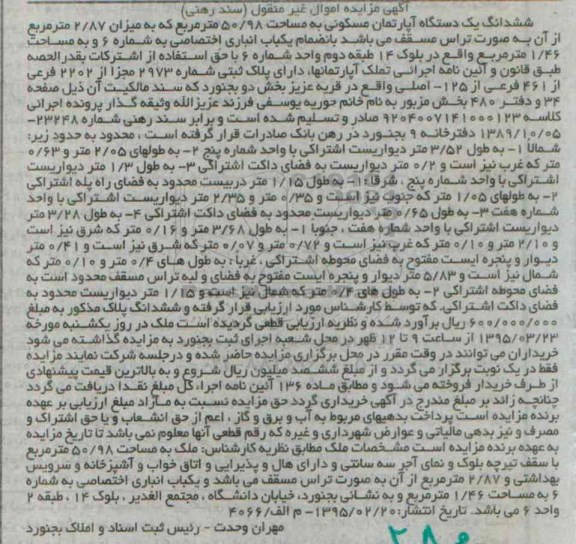 آگهی مزایده اموال غیر منقول (سند رهنی)
ششدانگ یک دستگاه آپارتمان مسکونی به مساحت ۵۰/۹۸ مترمربع که به میزان ۲/۸۷ مترمربع
از آن به صورت تراس مسقف می باشد بانضمام یکباب انباری اختصاصی به شماره ۶ و به مساحت
۱/۴۶ مترمربع واقع در بلوک ۱۴ طبقه دوم واحد شماره ۶ با حق استفاده از اشتراکات بقدرالحصه
طبق قانون و آئین نامه اجرائی تملک آپارتمانها، دارای پلاک ثبتی شماره ۲۹۷۳ مجزا از ۲۲۰۲ فرعی
از ۴۶۱ فرعی از ۱۲۵- اصلی واقع در قریه عزیز بخش دو بجنورد که سند مالکیت آن ذیل صفحه
۳۴ و دفتر ۴۸۰ بخش مزبور به نام خانم حوریه یوسفی فرزند عزیزالله وثیقه گذار پرونده اجرائی
کلاسه ۹۲۰۴۰۰۷۱۴۱۰۰۰۱۲۳ صادر و تسلیم شده است و برابر سند رهنی شماره ۲۳۲۴۸-
۱۳۸۹/۱۰/۰۵ دفترخانه ۹ بجنورد در رهن بانک صادرات قرار گرفته است، محدود به حدود زیر:
شمالا ۱- به طول ۳/۵۲ متر دیواریست اشتراکی با واحد شماره پنج ۲- به طولهای ۲/۰۵ متر و ۰/۶۳
متر که غرب نیز است و ۰/۲ متر دیواریست به فضای داکت اشتراکی ۳- به طول ۱/۳ متر دیواریست
اشتراکی با واحد شماره پنج، شرقا: ۱- به طول ۱/۱۵ متر دربیست محدود به فضای راه پله اشتراکی
۲- به طولهای ۱/۰۵ متر که جنوب نیز است و ۰/۳۵ متر و ۲/۳۵ متر دیواریست اشتراکی با واحد
شماره هفت ۳- به طول ۰/۶۵ متر دیواریست محدود به فضای داکت اشتراکی ۴- به طول ۳/۲۸ متر
دیواریست اشتراکی با واحد شماره هفت، جنوبا ۱- به طول ۳/۶۸ متر و ۰/۱۶ متر که شرق نیز است
و ۲/۱۰ متر و ۰/۱۰ متر که غرب نیز است و ۰/۷۲ متر و ۰/۰۷ متر که شرق نیز است و ۰/۴۱ متر
دیوار و پنجره ایست مفتوح به فضای محوطه اشتراکی، غربا: به طول های ۰/۴ متر و ۰/۱۰ متر که
شمال نیز است و ۵/۸۳ متر دیوار و پنجره ایست مفتوح به فضای و لبه تراس مسقف محدود است به
فضای محوطه اشتراکی ۲- به طول های ۰/۴ متر که شمال نیز است و ۱/۱۵ متر دیواریست محدود به
فضای داکت اشتراکی. که توسط کارشناس مورد ارزیابی قرار گرفته و ششدانگ پلاک مذکور به مبلغ
۶۰۰/۰۰۰/۰۰۰ ریال برآورد شده و نظریه ارزیابی قطعی گردیده است ملک در روز یکشنبه مورخه
۱۳۹۵/۰۳/۲۳ از ساعت ۹ تا ۱۲ ظهر در محل شعبه اجرای ثبت بجنورد به مزایده گذاشته می شود
خریداران می توانند در وقت مقرر در محل برگزاری مزایده حاضر شده و درجلسه شرکت نمایند مزایده
فقط در یک نوبت برگزار می گردد و از مبلغ ششصد میلیون ریال شروع و به بالاترین قیمت پیشنهادی
از طرف خریدار فروخته می شود و مطابق ماده ۱۳۶ آئین نامه اجرا، کل مبلغ نقدا دریافت می گردد
چنانچه زائد بر مبلغ مندرج در آگهی خریداری گردد حق مزایده نسبت به مازاد مبلغ ارزیابی بر عهده
برنده مزایده است پرداخت بدهیهای مربوط به آب و برق و گاز، اعم از حق انشعاب و یا حق اشتراک و
مصرف و نیز بدهی مالیاتی و عوارض شهرداری و غیره که رقم قطعی آنها معلوم نمی باشد تا تاریخ مزایده
به عهده برنده مزایده است مشخصات ملک مطابق نظریه کارشناس: ملک به مساحت ۵۰/۹۸ مترمربع
با سقف تیرچه بلوک و نمای آجر سه سانتی و دارای هال و پذیرایی و اتاق خواب و آشپزخانه و سرویس
بهداشتی و ۲/۸۷ مترمربع از آن به صورت تراس مسقف می باشد و یکباب انباری اختصاصی به شماره
۶ به مساحت ۱/۴۶ مترمربع و به نشانی بجنورد، خیابان دانشگاه، مجتمع الغدیر، بلوک ۱۴، طبقه ۲
واحد ۶ می باشد. تاریخ انتشار: ۱۳۹۵/۰۲/۲۰- م الف/۴۰۶۶
مهران وحدت - رئیس ثبت اسناد و املاک بجنورد
۲۸۰